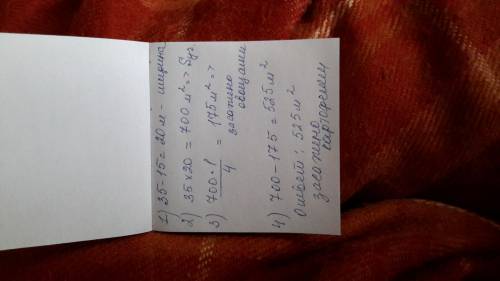 1) 35-15=20 м - ширина
2) 35×20 = 700 м² => Sуч.
3) 700*1/4 = 175 м² =>
засажено
овощами
4) 700-175=525 м²
Ответ: 525 м²
засажено
картофелем